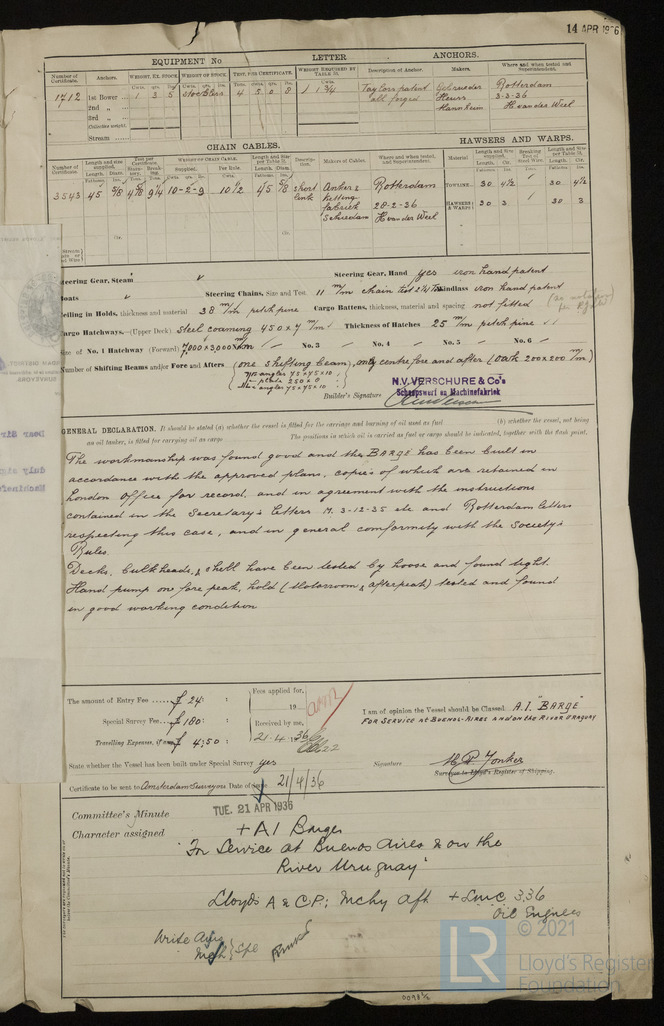 14 APR 1936
EQUIPMENT No LETTER ANCHORS.
Number of Certificate. Anchors. WEIGHT, EX. STOCK. WEIGHT OF STOCK. TEST, PER CERTIFICATE. WEIGHT REQUIRED BY TABLE Description of Anchor. Makers. Where and when tested and Superintendent.
1712 1st Bower 1 3 5 Stockless 4 5 0 8 1 1 3/4 Taylors patent all forged Schroeder Mannheim Rotterdam 3-3-36 H van der Weel
2nd "
3rd "
Collective weight.
Stream
CHAIN CABLES. HAWSERS AND WARPS.
3543 45 5/8 4 5/8 9 1/4 10-2-9 10 1/2 45 5/8 Short link Anker & Ketting fabriek Schiedam Rotterdam 28-2-36 H van der Weel
TOWLINE 30 4 1/2 30 4 1/2
HAWSERS & WARPS 30 3 30 3
Steering Gear, Steam Steering Gear, Hand yes iron hand patent
Boats Steering Chains, Size and Test 11 m/m chain test Windlass iron hand patent
Ceiling in Holds, thickness and material 38 m/m pitch pine Cargo Battens, thickness, material and spacing not fitted
Cargo Hatchways. (Upper Deck) Steel coaming 450x7 m/m Thickness of Hatches 25 m/m pitch pine
Size of No. 1 Hatchway (Forward) 7,000 x 3,000 m/m No. 3 No. 4 No. 5 No. 6
Number of Shifting Beams and/or Fore and Afters (one shifting beam), only centre fore and after (oak 200x200 m/m)
angles 75x75x10
plate 250x8
angles 75x75x10
N.V. VERSCHURE & Co's
Scheepswerf en Machinefabriek
Builder's Signature
GENERAL DECLARATION. It should be stated (a) whether the vessel is fitted for the carriage and burning of oil used as fuel (b) whether the vessel, not being
an oil tanker, is fitted for carrying oil as cargo The positions in which oil is carried as fuel or cargo should be indicated, together with the flash point.
The workmanship was found good and the BARGE has been built in
accordance with the approved plans, copies of which are retained in
London Office for record, and in agreement with the instructions
contained in the Secretary's letters M. 3-12-35 etc and Rotterdam letters
respecting this case, and in general conformity with the Society's
Rules.
Decks, bulkheads, & shell have been tested by hoose and found tight.
Hand pump on fore peak, hold (Motorroom & afterpeak) tested and found
in good working condition
The amount of Entry Fee ƒ 24: : Fees applied for,
19
Special Survey Fee ƒ 180: : Received by me,
Travelling Expenses, if any ƒ 4:50 : 21.4.36
I am of opinion the Vessel should be Classed A.1. "BARGE"
FOR SERVICE AT BUENOS-AIRES AND ON THE RIVER URUGUAY
State whether the Vessel has been built under Special Survey yes
Signature H P Jonker
Surveyor to Lloyd's Register of Shipping.
Certificate to be sent to Amsterdam Surveyors Date of issue 21/4/36
Committee's Minute TUE. 21 APR 1936
Character assigned + A1 Barge
"For Service at Buenos Aires & on the
River Uruguay"
Lloyd's A & CP; Mchy Aft + LMC 3.36
Oil Engines
Write
© 2021
LR Lloyd's Register
Foundation
Dear Sir